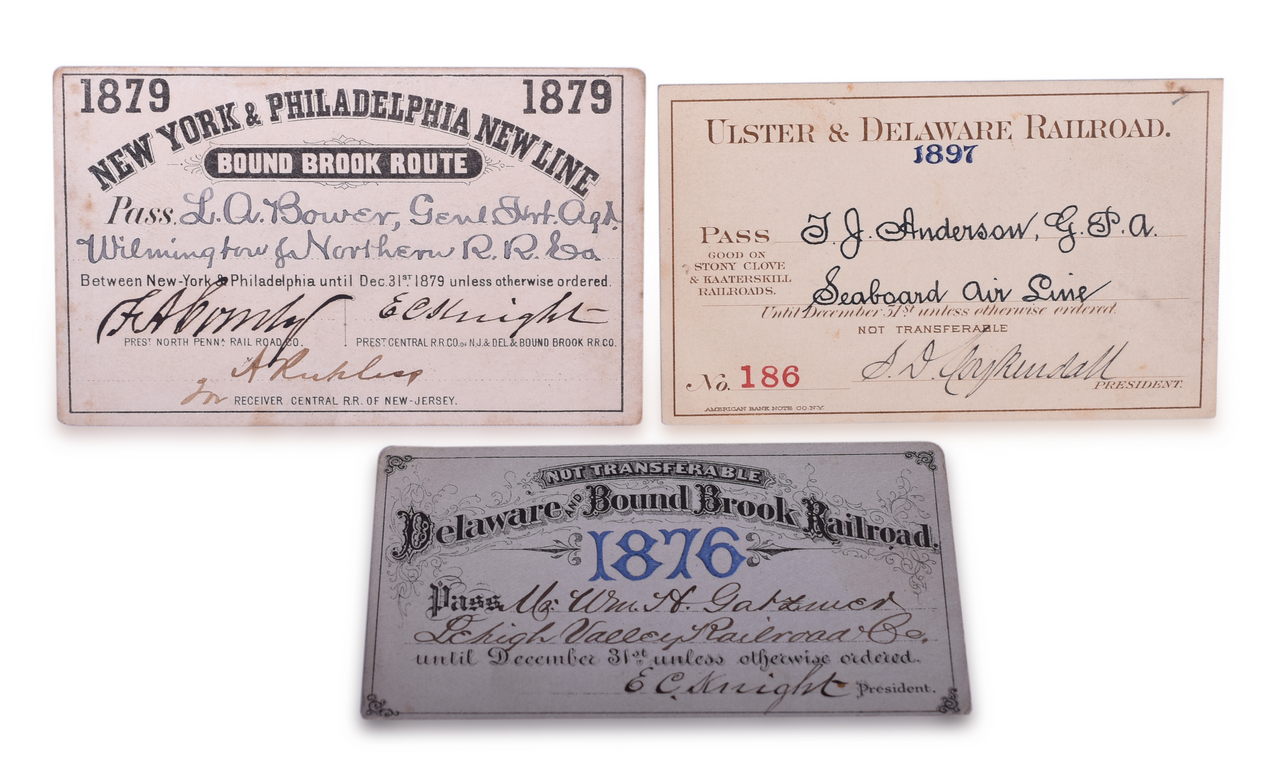 1879 1879
NEW YORK & PHILADELPHIA NEW LINE
BOUND BROOK ROUTE
Pass L. A. Bower, Genl Frt. Agt.
Wilmington & Northern R. R. Co
Between New-York & Philadelphia until Dec. 31ST 1879 unless otherwise ordered.
F A Comly E C Knight
PREST NORTH PENNA RAIL ROAD CO. PREST CENTRAL R.R.CO. OF N.J. & DEL & BOUND BROOK R.R.CO.
for
RECEIVER CENTRAL R.R. OF NEW-JERSEY.
ULSTER & DELAWARE RAILROAD.
1897
PASS T. J. Anderson, G. P. A.
GOOD ON
STONY CLOVE
& KAATERSKILL
RAILROADS.
Seaboard Air Line
Until December 31st unless otherwise ordered.
NOT TRANSFERABLE
No. 186 S. D. Coykendall
PRESIDENT.
AMERICAN BANK NOTE CO. N.Y.
NOT TRANSFERABLE
Delaware AND Bound Brook Railroad.
1876
Pass Mr. Wm. H. Gatzmer
Lehigh Valley Railroad Co.
until December 31st unless otherwise ordered.
E C. Knight President.